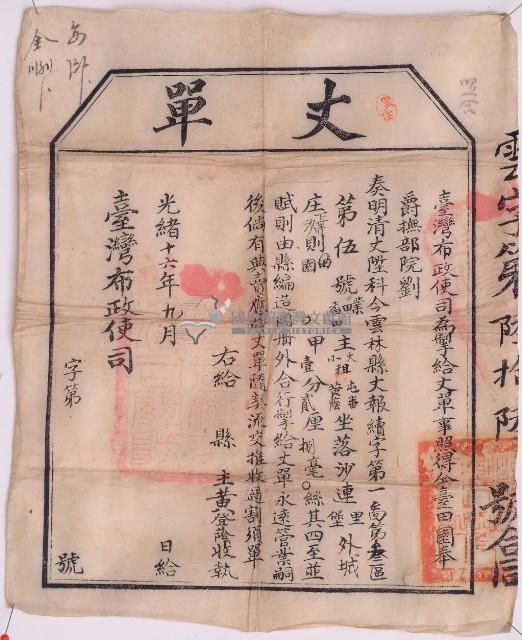 丈單
臺灣布政使司為掣給丈單事照得全臺田園奉
爵撫部院劉
奏明清丈陞科今雲林縣丈報續字第一高第叁區
第伍號
業
主
大租屯番
小租黃蔭
坐落沙連
里
堡
外城
庄
則
田
園
甲壹分貳厘捌毫○絲其四至並
賦則由縣編造圖冊外合行掣給丈單永遠管業嗣
後倘有典賣應將丈單隨契流交推收過割須單
右給縣
主黃登蔭收執
光緒十六年九月
日給
臺灣布政使司
字第
號
雲字第
陸拾陸
號合同
國史館臺灣文獻館
TAIWAN HISTORICA